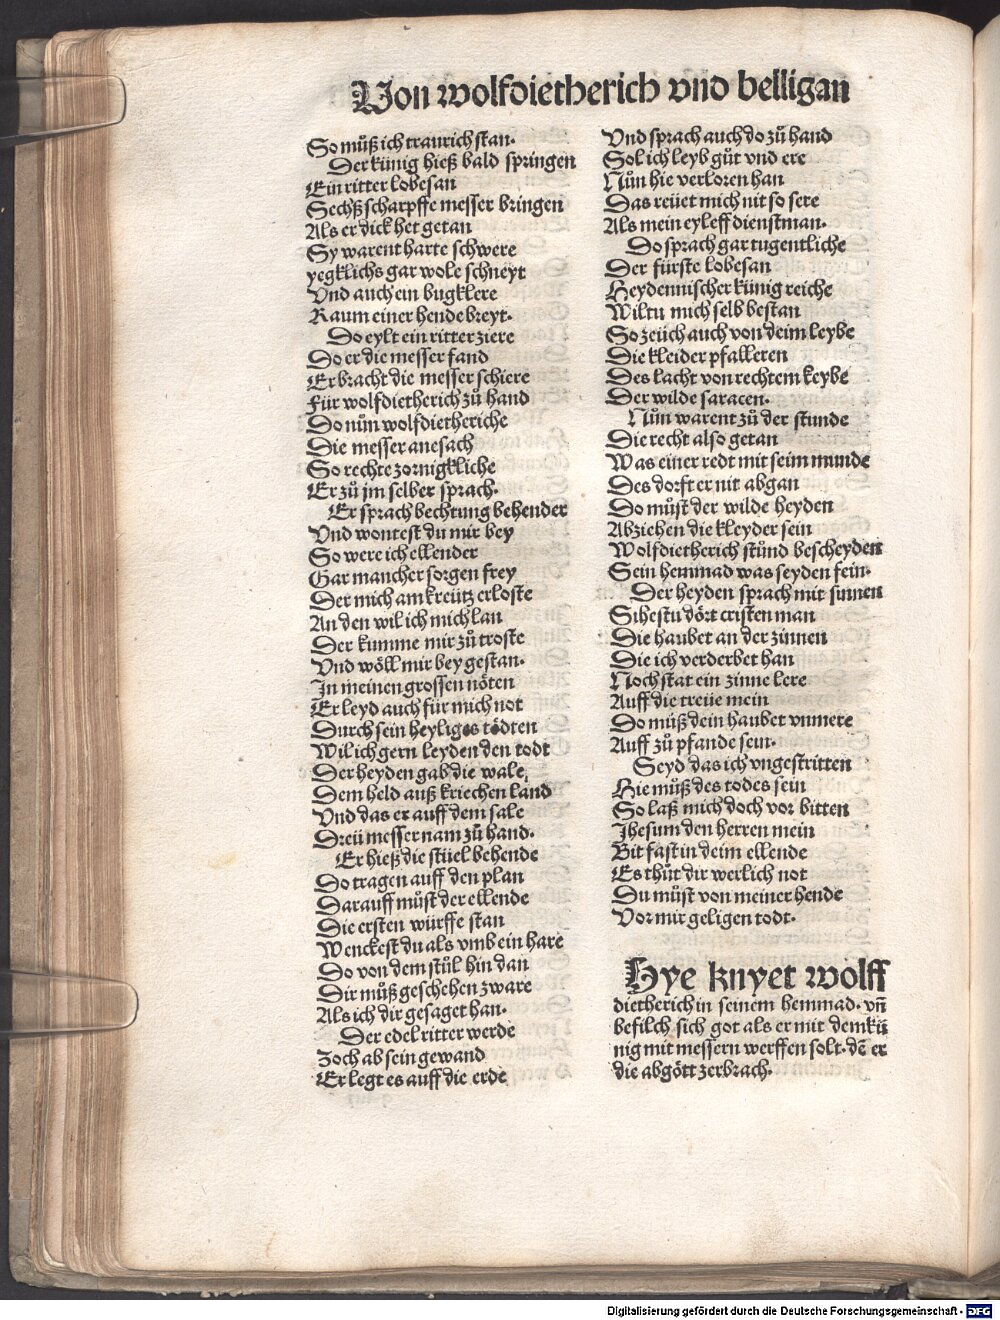 Von wolfdietherich vnd belligan
So můß ich traurich stan.
Der künig hieß bald springen
Ein ritter lobesan
Sechß scharpffe messer bringen
Als er dick het getan
Sy warent harte schwere
yegklichs gar wole schneyt
Vnd auch ein bugklere
Kaum einer hende breyt.
Do eylt ein ritter ziere
Do er die messer fand
Er bracht die messer schiere
Für wolfdietherich zů hand
Do nůn wolfdietheriche
Die messer ane sach
So rechte zornigkliche
Er zů jm selber sprach.
Er sprach bechtung behender
Vnd wontest du mir bey
So were ich ellender
Gar mancher sorgen frey
Der mich am kreütz erloste
An den wil ich mich lan
Der kumme mir zů troste
Vnd wöll mir bey gestan.
In meinen grossen nöten
Er leyd auch für mich not
Durch sein heyliges tödten
Wil ich gern leyden den todt
Der heyden gab die wale
Dem held auß kriechen land
Vnd das er auff dem sale
Dreü messer nam zů hand.
Er hieß die stüel behende
Do tragen auff den plan
Darauff můst der ellende
Die ersten würffe stan
Wenckest du als vmb ein hare
Do von dem stůl hin dan
Dir můß geschehen zware
Als ich dir gesaget han.
Der edel ritter werde
Zoch ab sein gewand
Er legt es auff die erde
Vnd sprach auch do zů hand
Sol ich leyb gůt vnd ere
Nůn hie verloren han
Das reüet mich nit so sere
Als mein eyleff dienstman.
Do sprach gar tugentliche
Der fürste lobesan
Heydennischer künig reiche
Wiltu mich selb bestan
So zeüch auch von deim leybe
Die kleider pfalleren
Des lacht von rechtem keybe
Der wilde saracen.
Nůn warent zů der stunde
Die recht also getan
Was einer redt mit seim munde
Des dorft er nit abgan
Do můst der wilde heyden
Abziehen die kleyder sein
Wolfdietherich stůnd bescheyden
Sein hemmad was seyden fein.
Der heyden sprach mit sinnen
Sihestu dört cristen man
Die haubet an der zinnen
Die ich verderbet han
Noch stat ein zinne lere
Auff die treüe mein
Do můß dein haubet vnmere
Auff zů pfande sein.
Seyd das ich vngestritten
Hie můß des todes sein
So laß mich doch vor bitten
Jhesum den herren mein
Bit fast in deim ellende
Es thůt dir werlich not
Du můst von meiner hende
Vor mir geligen todt.
Hye knyet wolff
dietherich in seinem hemmad. vñ
befilch sich got als er mit dem kü
nig mit messern werffen solt. dē er
die abgött zerbrach.
Digitalisierung gefördert durch die Deutsche Forschungsgemeinschaft - DFG